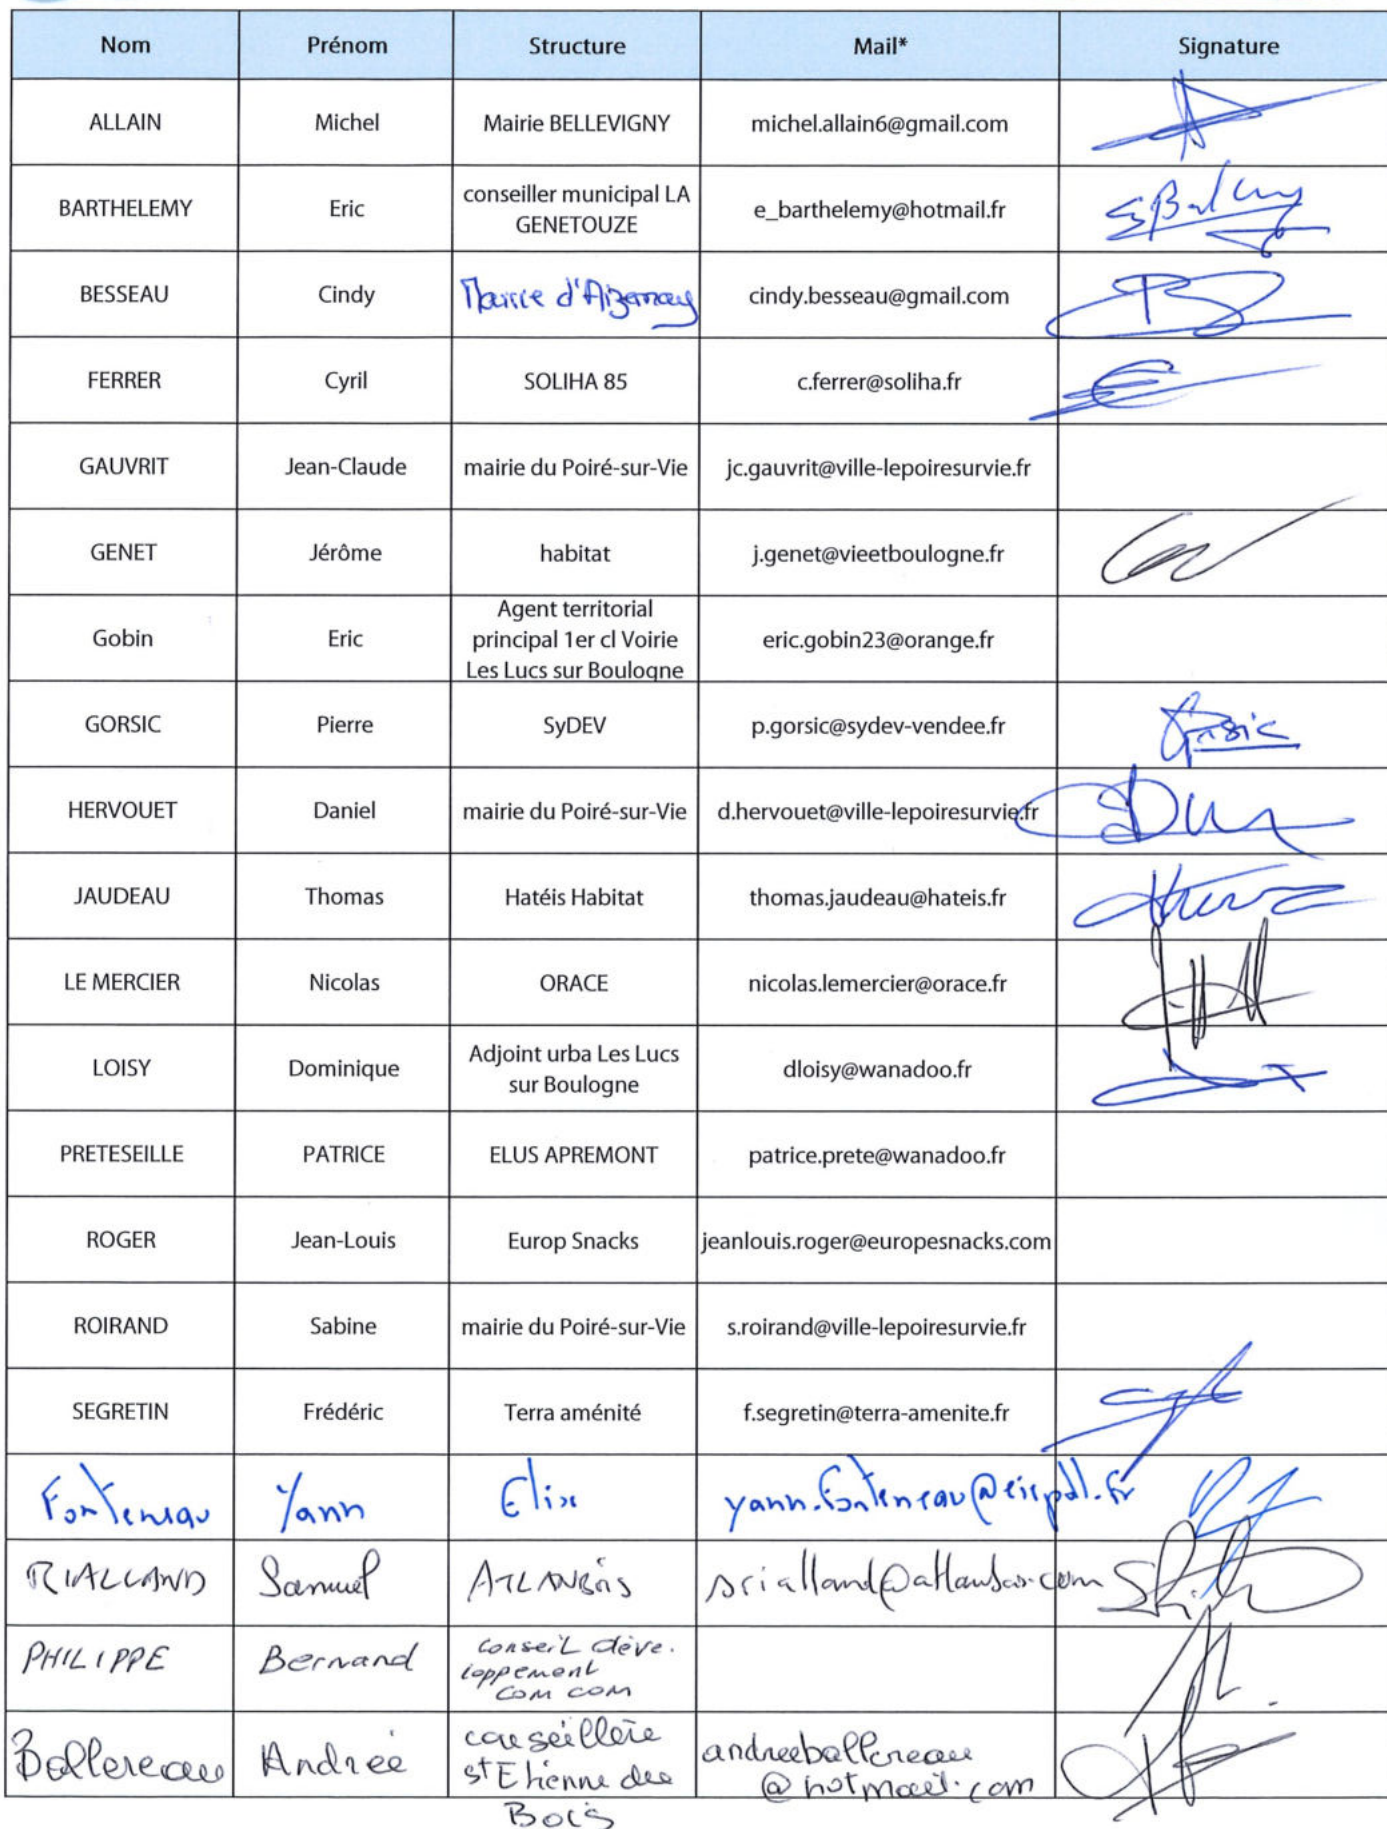 Nom Prénom Structure Mail* Signature
ALLAIN Michel Mairie BELLEVIGNY michel.allain6@gmail.com
BARTHELEMY Eric conseiller municipal LA
GENETOUZE e_barthelemy@hotmail.fr
BESSEAU Cindy Mairie d'Aizenay cindy.besseau@gmail.com
FERRER Cyril SOLIHA 85 c.ferrer@soliha.fr
GAUVRIT Jean-Claude mairie du Poiré-sur-Vie jc.gauvrit@ville-lepoiresurvie.fr
GENET Jérôme habitat j.genet@vieetboulogne.fr
Gobin Eric Agent territorial
principal 1er cl Voirie
Les Lucs sur Boulogne eric.gobin23@orange.fr
GORSIC Pierre SyDEV p.gorsic@sydev-vendee.fr Gorsic
HERVOUET Daniel mairie du Poiré-sur-Vie d.hervouet@ville-lepoiresurvie.fr
JAUDEAU Thomas Hatéis Habitat thomas.jaudeau@hateis.fr
LE MERCIER Nicolas ORACE nicolas.lemercier@orace.fr
LOISY Dominique Adjoint urba Les Lucs
sur Boulogne dloisy@wanadoo.fr
PRETESEILLE PATRICE ELUS APREMONT patrice.prete@wanadoo.fr
ROGER Jean-Louis Europ Snacks jeanlouis.roger@europesnacks.com
ROIRAND Sabine mairie du Poiré-sur-Vie s.roirand@ville-lepoiresurvie.fr
SEGRETIN Frédéric Terra aménité f.segretin@terra-amenite.fr
Fonteneau Yann Elise
RIALLAND Samuel ATLANBOIS srialland@atlanbois.com
PHILIPPE Bernard conseil déve.
loppement
com com
Ballereau Andrée conseillère
st Etienne du
Bois andreeballereau
@hotmail.com